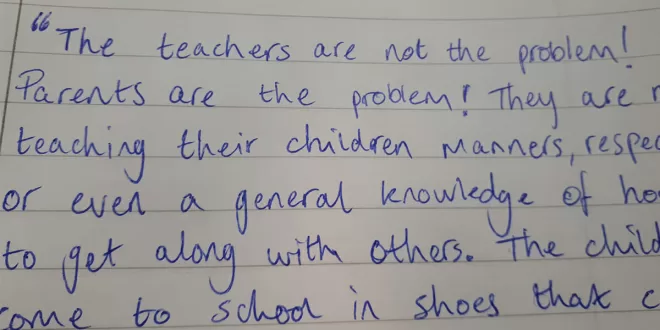 “The teachers are not the problem!
Parents are the problem! They are
teaching their children manners,
or even a general knowledge of
to get along with others. The
come to school in shoes that